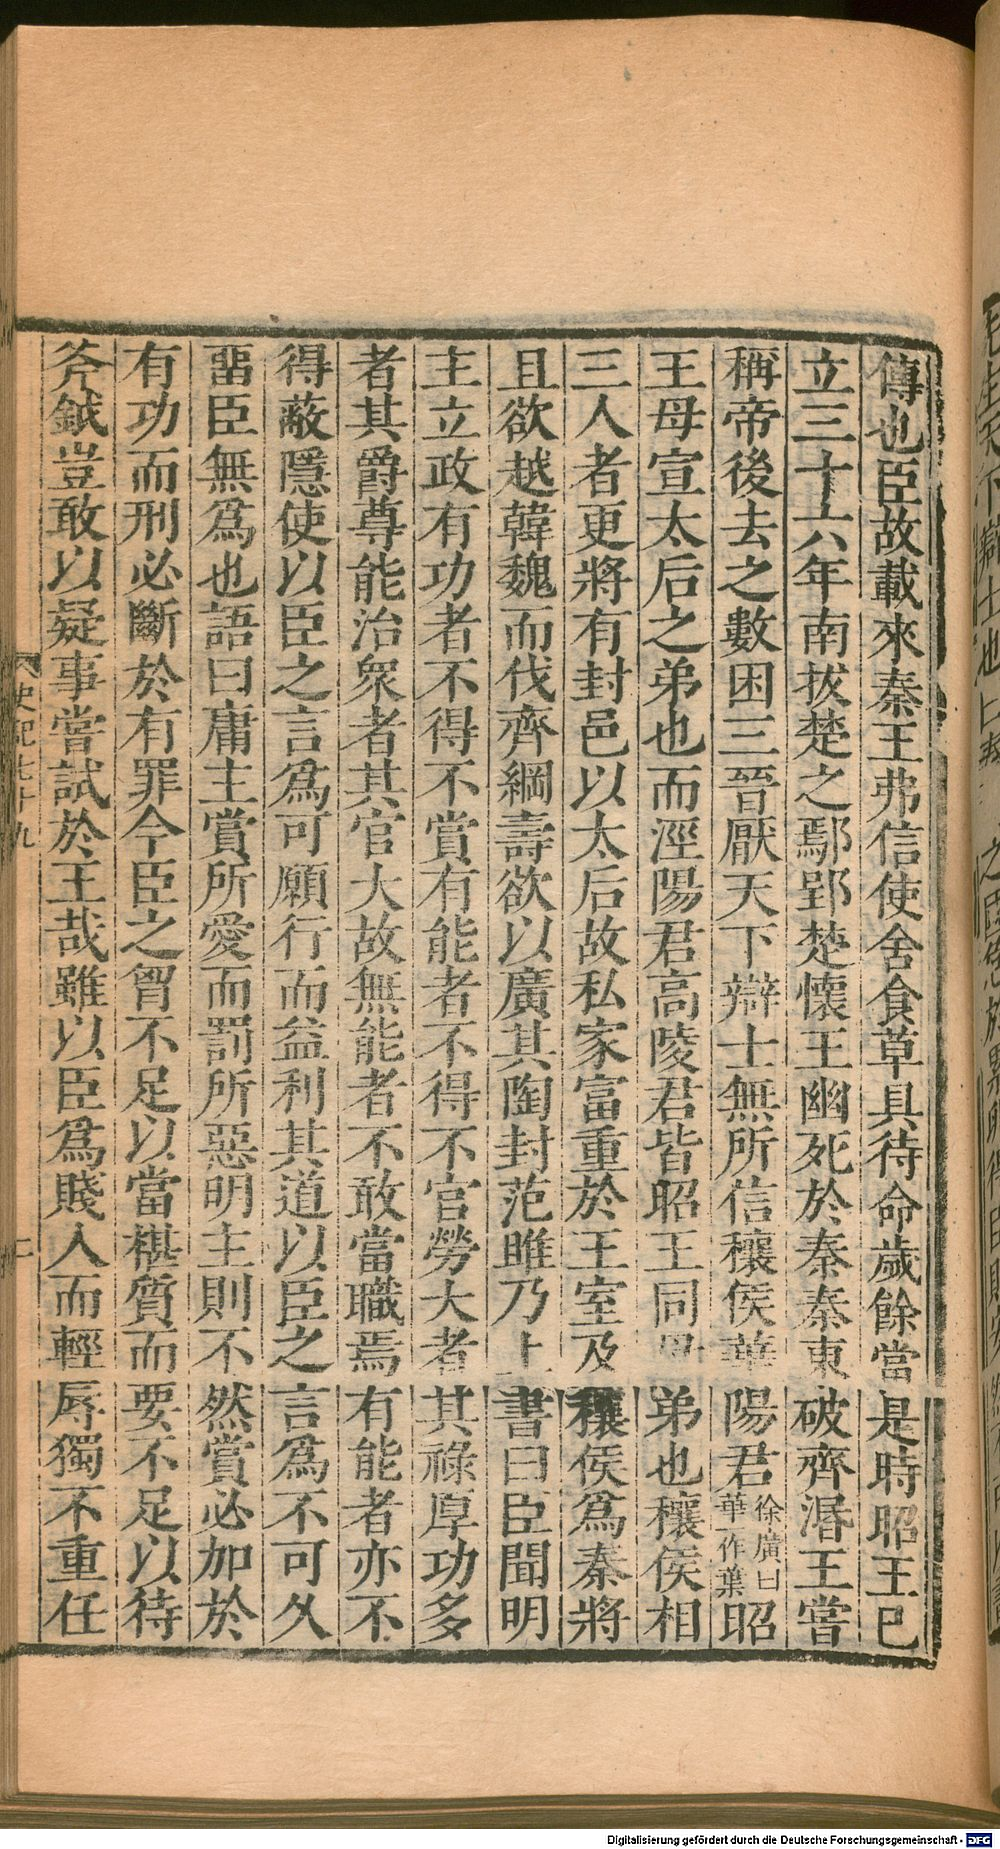 傳也臣故載來秦王弗信使舍食草具待命歲餘當是時昭王已
立三十六年南拔楚之鄢郢楚懷王幽死於秦秦東破齊湣王嘗
稱帝後去之數困三晉厭天下辯士無所信穰侯華陽君徐廣曰華一作葉昭
王母宣太后之弟也而涇陽君高陵君皆昭王同母弟也穰侯相
三人者更將有封邑以太后故私家富重於王室及穰侯爲秦將
且欲越韓魏而伐齊綱壽欲以廣其陶封范雎乃上書曰臣聞明
主立政有功者不得不賞有能者不得不官勞大者其祿厚功多
者其爵尊能治衆者其官大故無能者不敢當職焉有能者亦不
得蔽隱使以臣之言爲可願行而益利其道以臣之言爲不可久
畱臣無爲也語曰庸主賞所愛而罰所惡明主則不然賞必加於
有功而刑必斷於有罪今臣之胷不足以當椹質而要不足以待
斧鉞豈敢以疑事嘗試於王哉雖以臣爲賤人而輕辱獨不重任
史記七十九
二
Digitalisierung gefördert durch die Deutsche Forschungsgemeinschaft - DFG